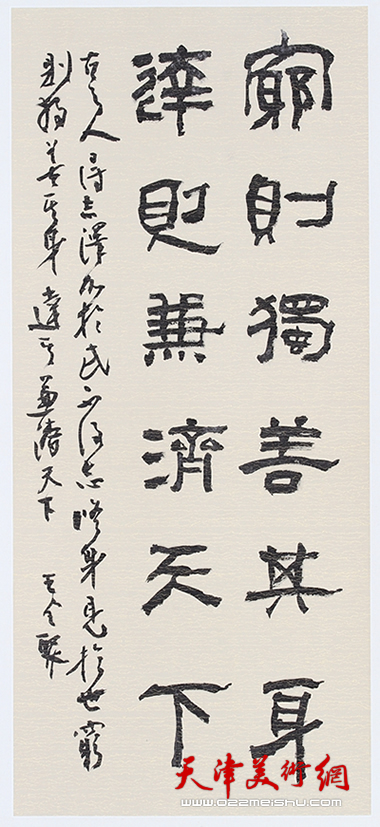 窮則獨善其身
達則兼濟天下
古之人得志澤加於民不得志修身見於世窮
則獨善其身達則兼濟天下 王全聚
天津美術網
www.022meishu.com